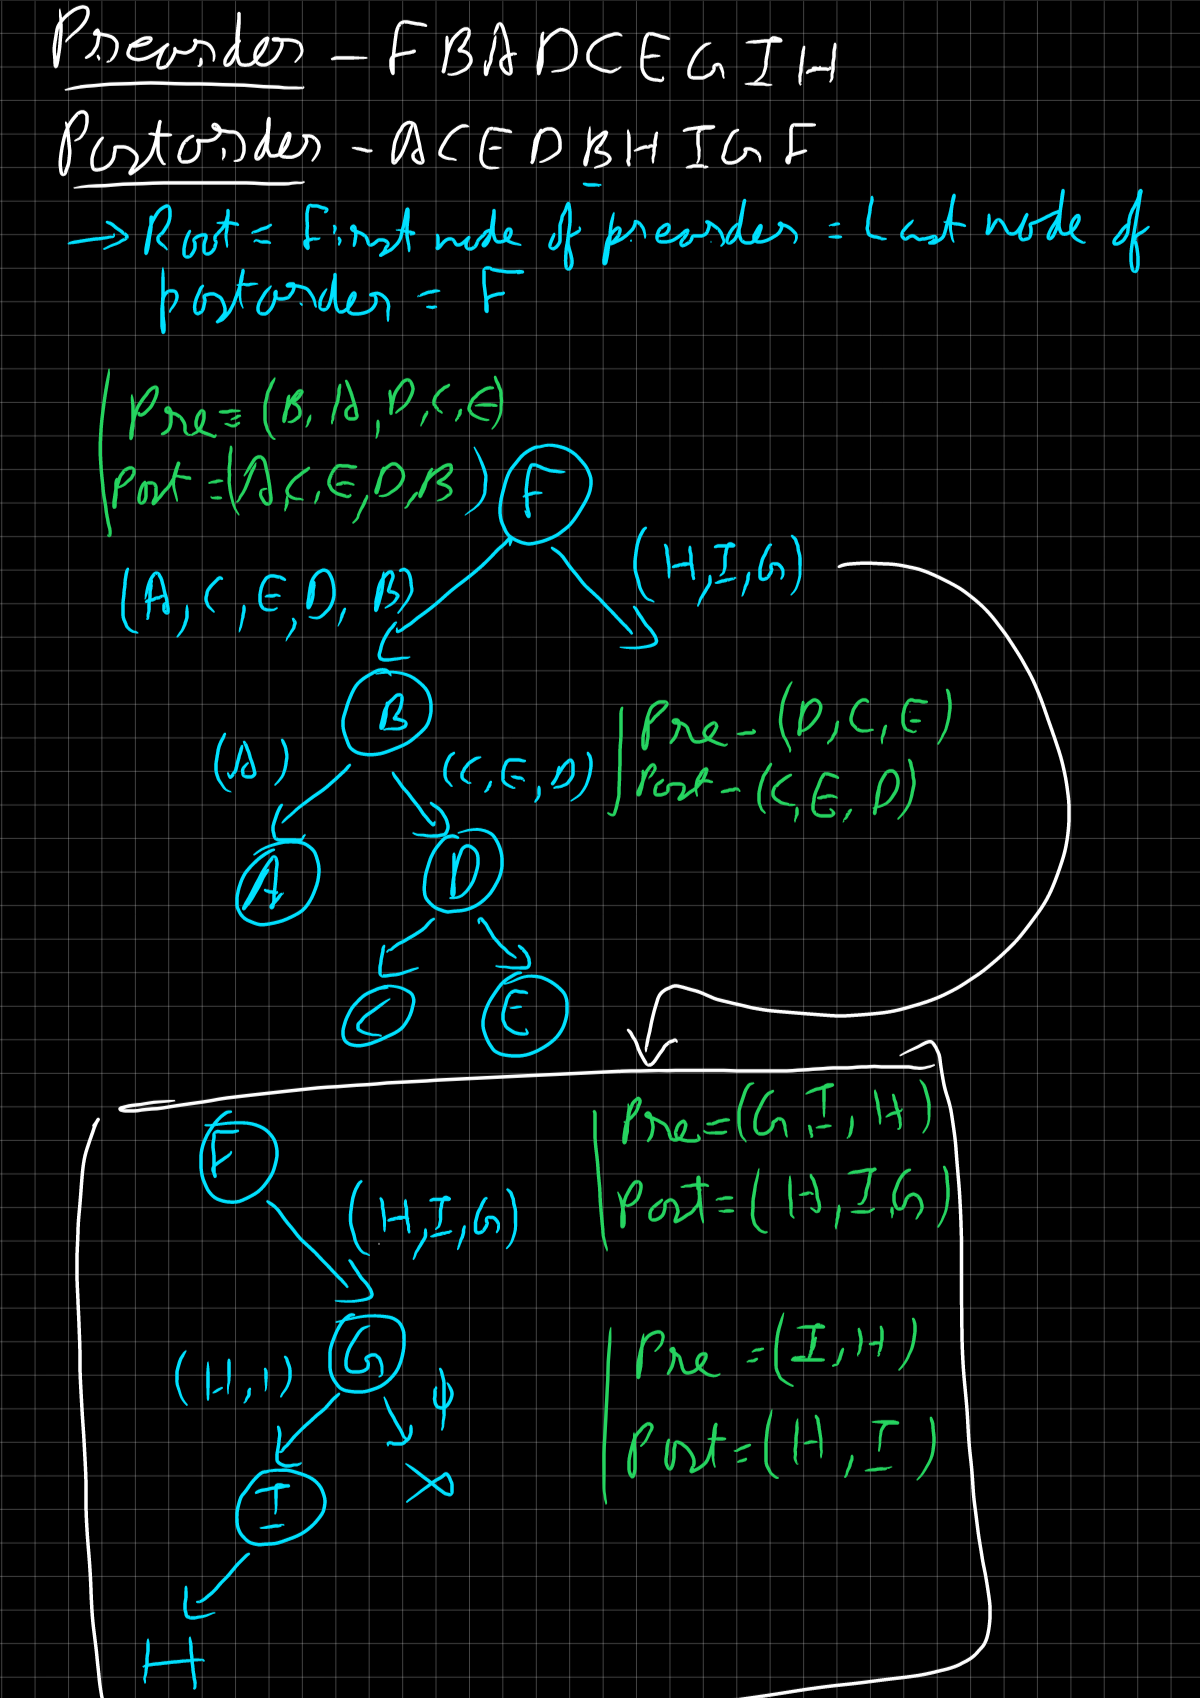 Preorder - F B A D C E G I H
Postorder - A C E D B H I G F
→ Root = First node of preorder = Last node of
postorder = F
Pre = (B, A, D, C, E)
Post = (A C, E, D, B)
F
(H, I, G)
(A, C, E, D, B)
B
Pre - (D, C, E)
Post - (C, E, D)
(A)
(C, E, D)
A
D
C
E
Pre = (G, I, H)
Post = (H, I, G)
F
(H, I, G)
Pre = (I, H)
Post = (H, I)
G
(H, I)
ϕ
I
H